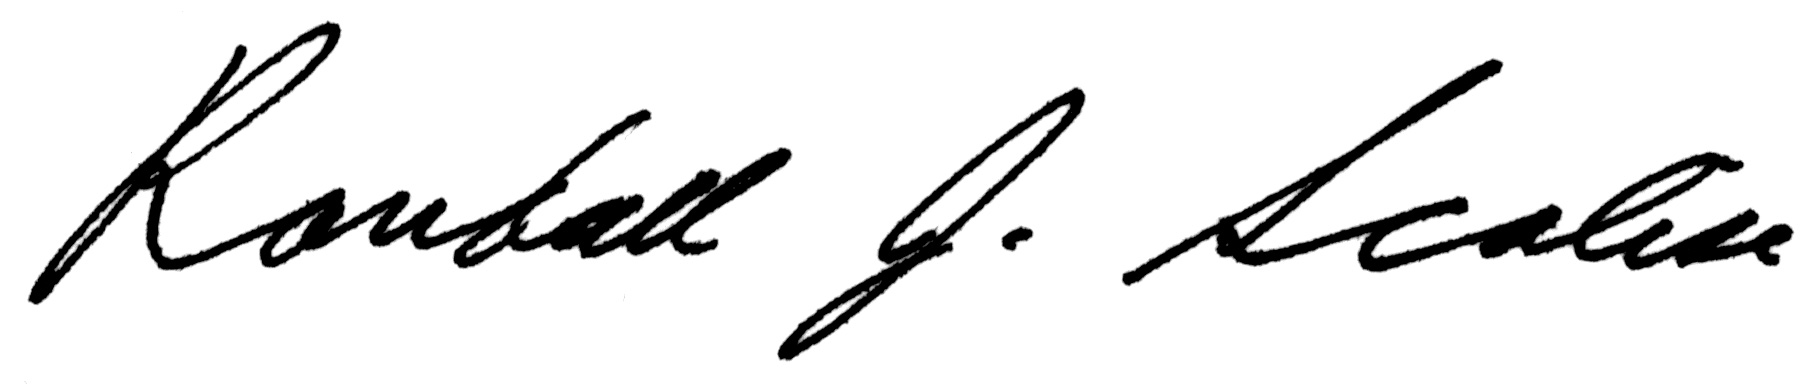 Randall J. Scalise